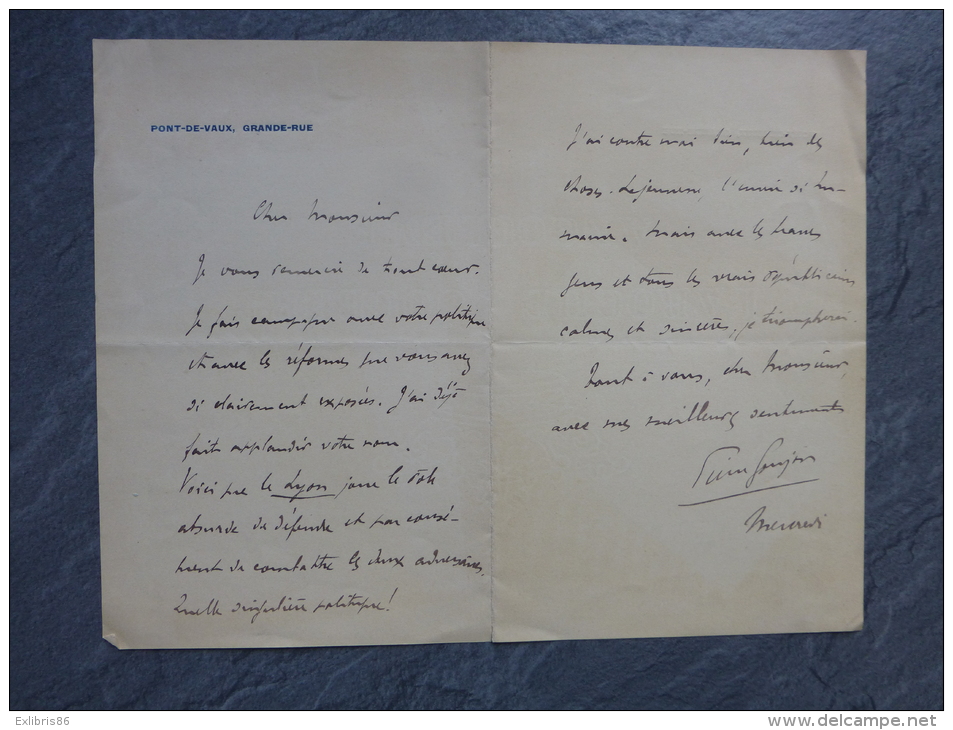 PONT-DE-VAUX, GRANDE-RUE
Cher Monsieur
Je vous remercie de tout cœur.
Je fais campagne avec votre politique
et avec les réformes que vous avez
si clairement exposées. J'ai déjà
fait applaudir votre nom.
Voici que le Lyon joue le rôle
absurde de défendre et par consé-
quent de combattre les deux adversaires.
Quelle singulière politique!
J'ai contre moi bien, bien des
choses. La jeunesse,
Mais avec les braves
gens et tous les vrais républicains
calmes et sincères, je triompherai.
Tout à vous, cher Monsieur,
avec mes meilleurs sentiments
Pierre Goujon
Mercredi
Exlibris86
www.delcampe.net